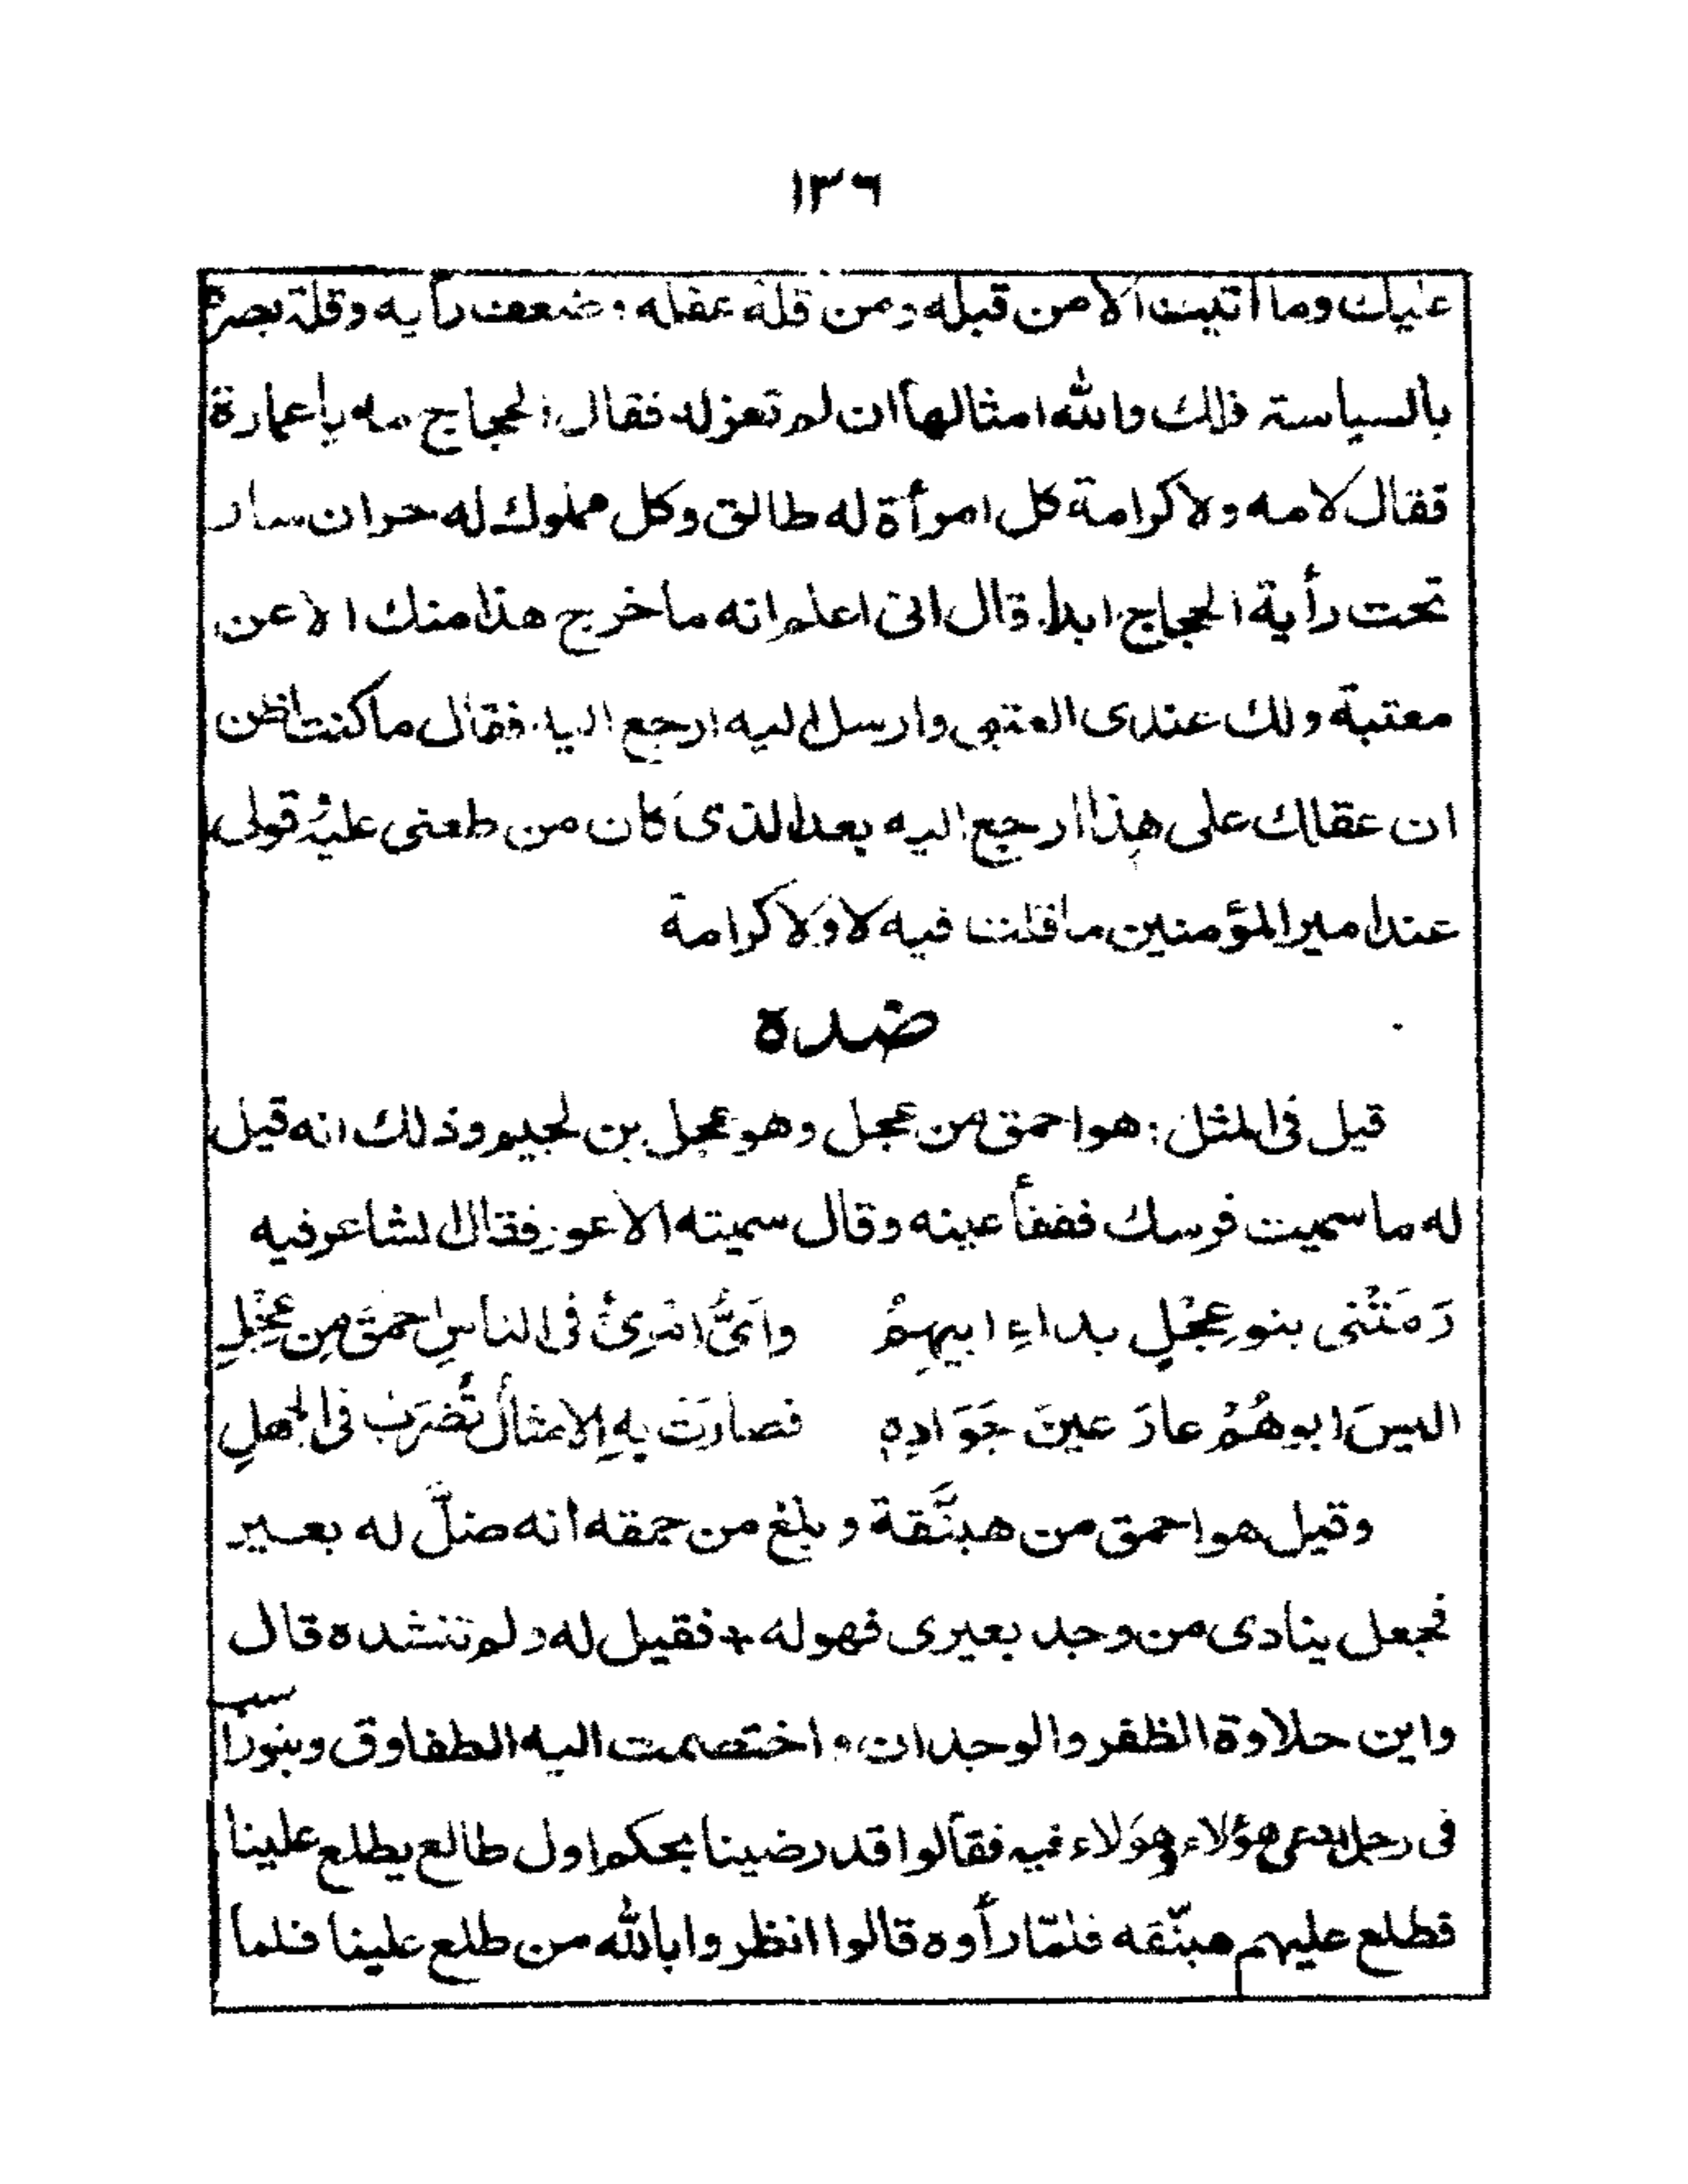 ١٣٦
عليك وما اتيت الا من قبله ومن قلة عقله وضعف رأيه وقلة بصره
بالسياسة فلك والله امثالها ان لم تعزله فقال الحجاج مه يا عمارة
فقال لا مه ولا كرامة كل امرأة له طالق وكل مملوك له حر ان سار
تحت رأية الحجاج ابدا. قال انى اعلم انه ما خرج هذا منك الا عن
معتبة ولك عندى العتبى وارسل اليه ارجع اليه. فقال ما كنت اظن
ان عقلك على هذا ارجع اليه بعد الذى كان من طعنى عليه وقولى
عند امير المؤمنين ما قلت فيه لا ولا كرامة
ضده
قيل فى المثل: هو احمق من عجل وهو عجل بن لجيم وذلك انه قيل
له ما سميت فرسك ففقأ عينه وقال سميته الاعور فقال الشاعر فيه
رَمَتْنى بنو عِجْلٍ بداءِ ابيهِمُ وأَىُّ امْرِئٍ فى الناسِ احمقَ مِن عِجْلِ
اليسَ ابوهُمْ عارَ عينَ جَوَادِهِ فصارَت بِهِ الامثالُ تُضرَبُ فى الجهلِ
وقيل هو احمق من هبنَّقة وبلغ من حمقه انه ضلَّ له بعير
فجعل ينادى من وجد بعيرى فهو له + فقيل له ولم تنشده قال
واين حلاوة الظفر والوجدان، واختصمت اليه الطفاوة وبنو راسب
فى رجل يدعى هؤلاء وهؤلاء فيه فقالوا قد رضينا بحكم اول طالع يطلع علينا
فطلع عليهم هبنّقه فلمّا رأوه قالوا انظروا بالله من طلع علينا فلما